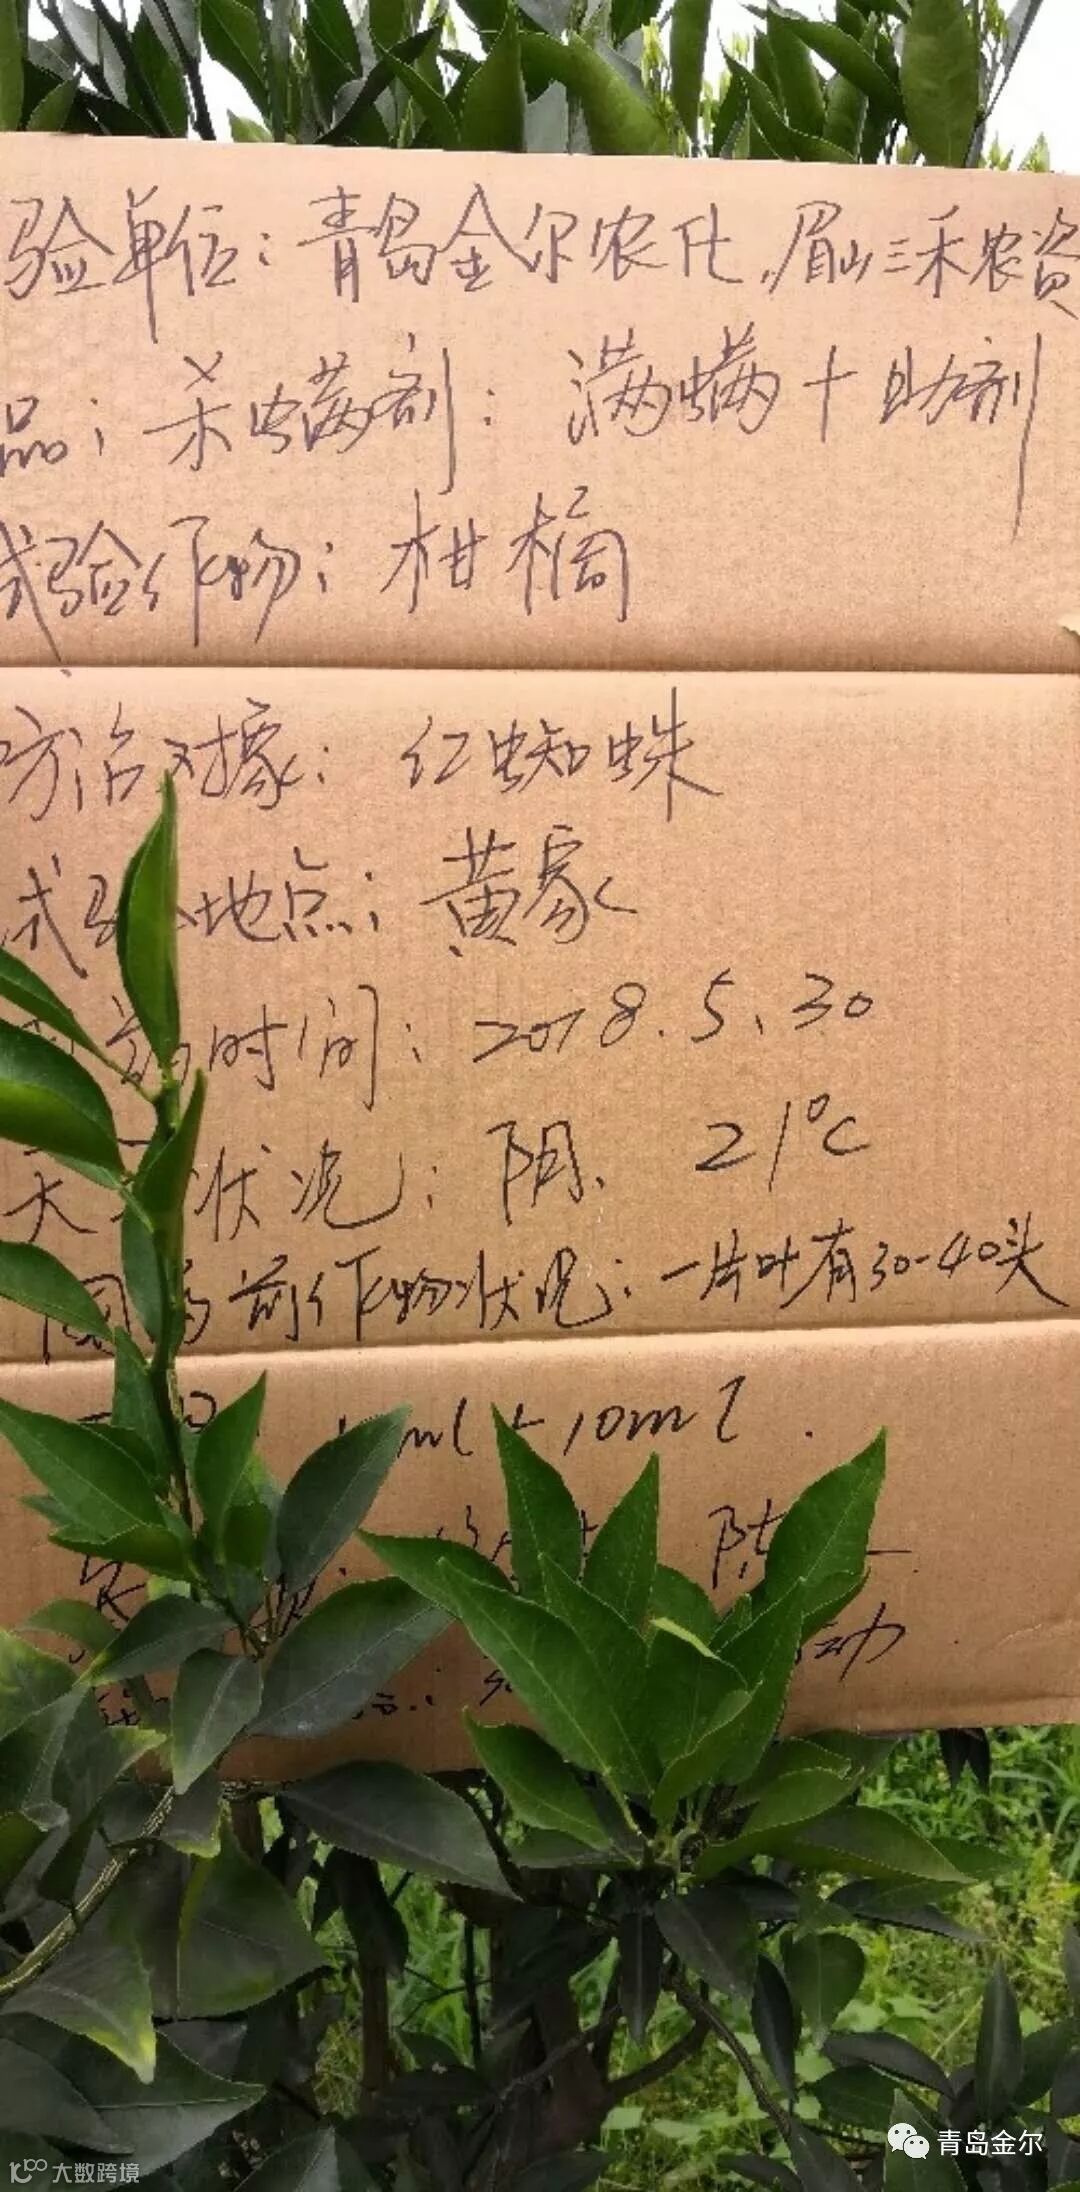 验单位：青岛金尔农化，眉山三禾农资
品：杀螨剂：满螨+助剂
试验作物：柑橘
防治对象：红蜘蛛
试验地点：黄家
药时间：2018.5.30
天 状况：阴、21℃
用药前作物状况：一片叶有30-40头
ml+10ml.
动
青岛金尔
大数跨境